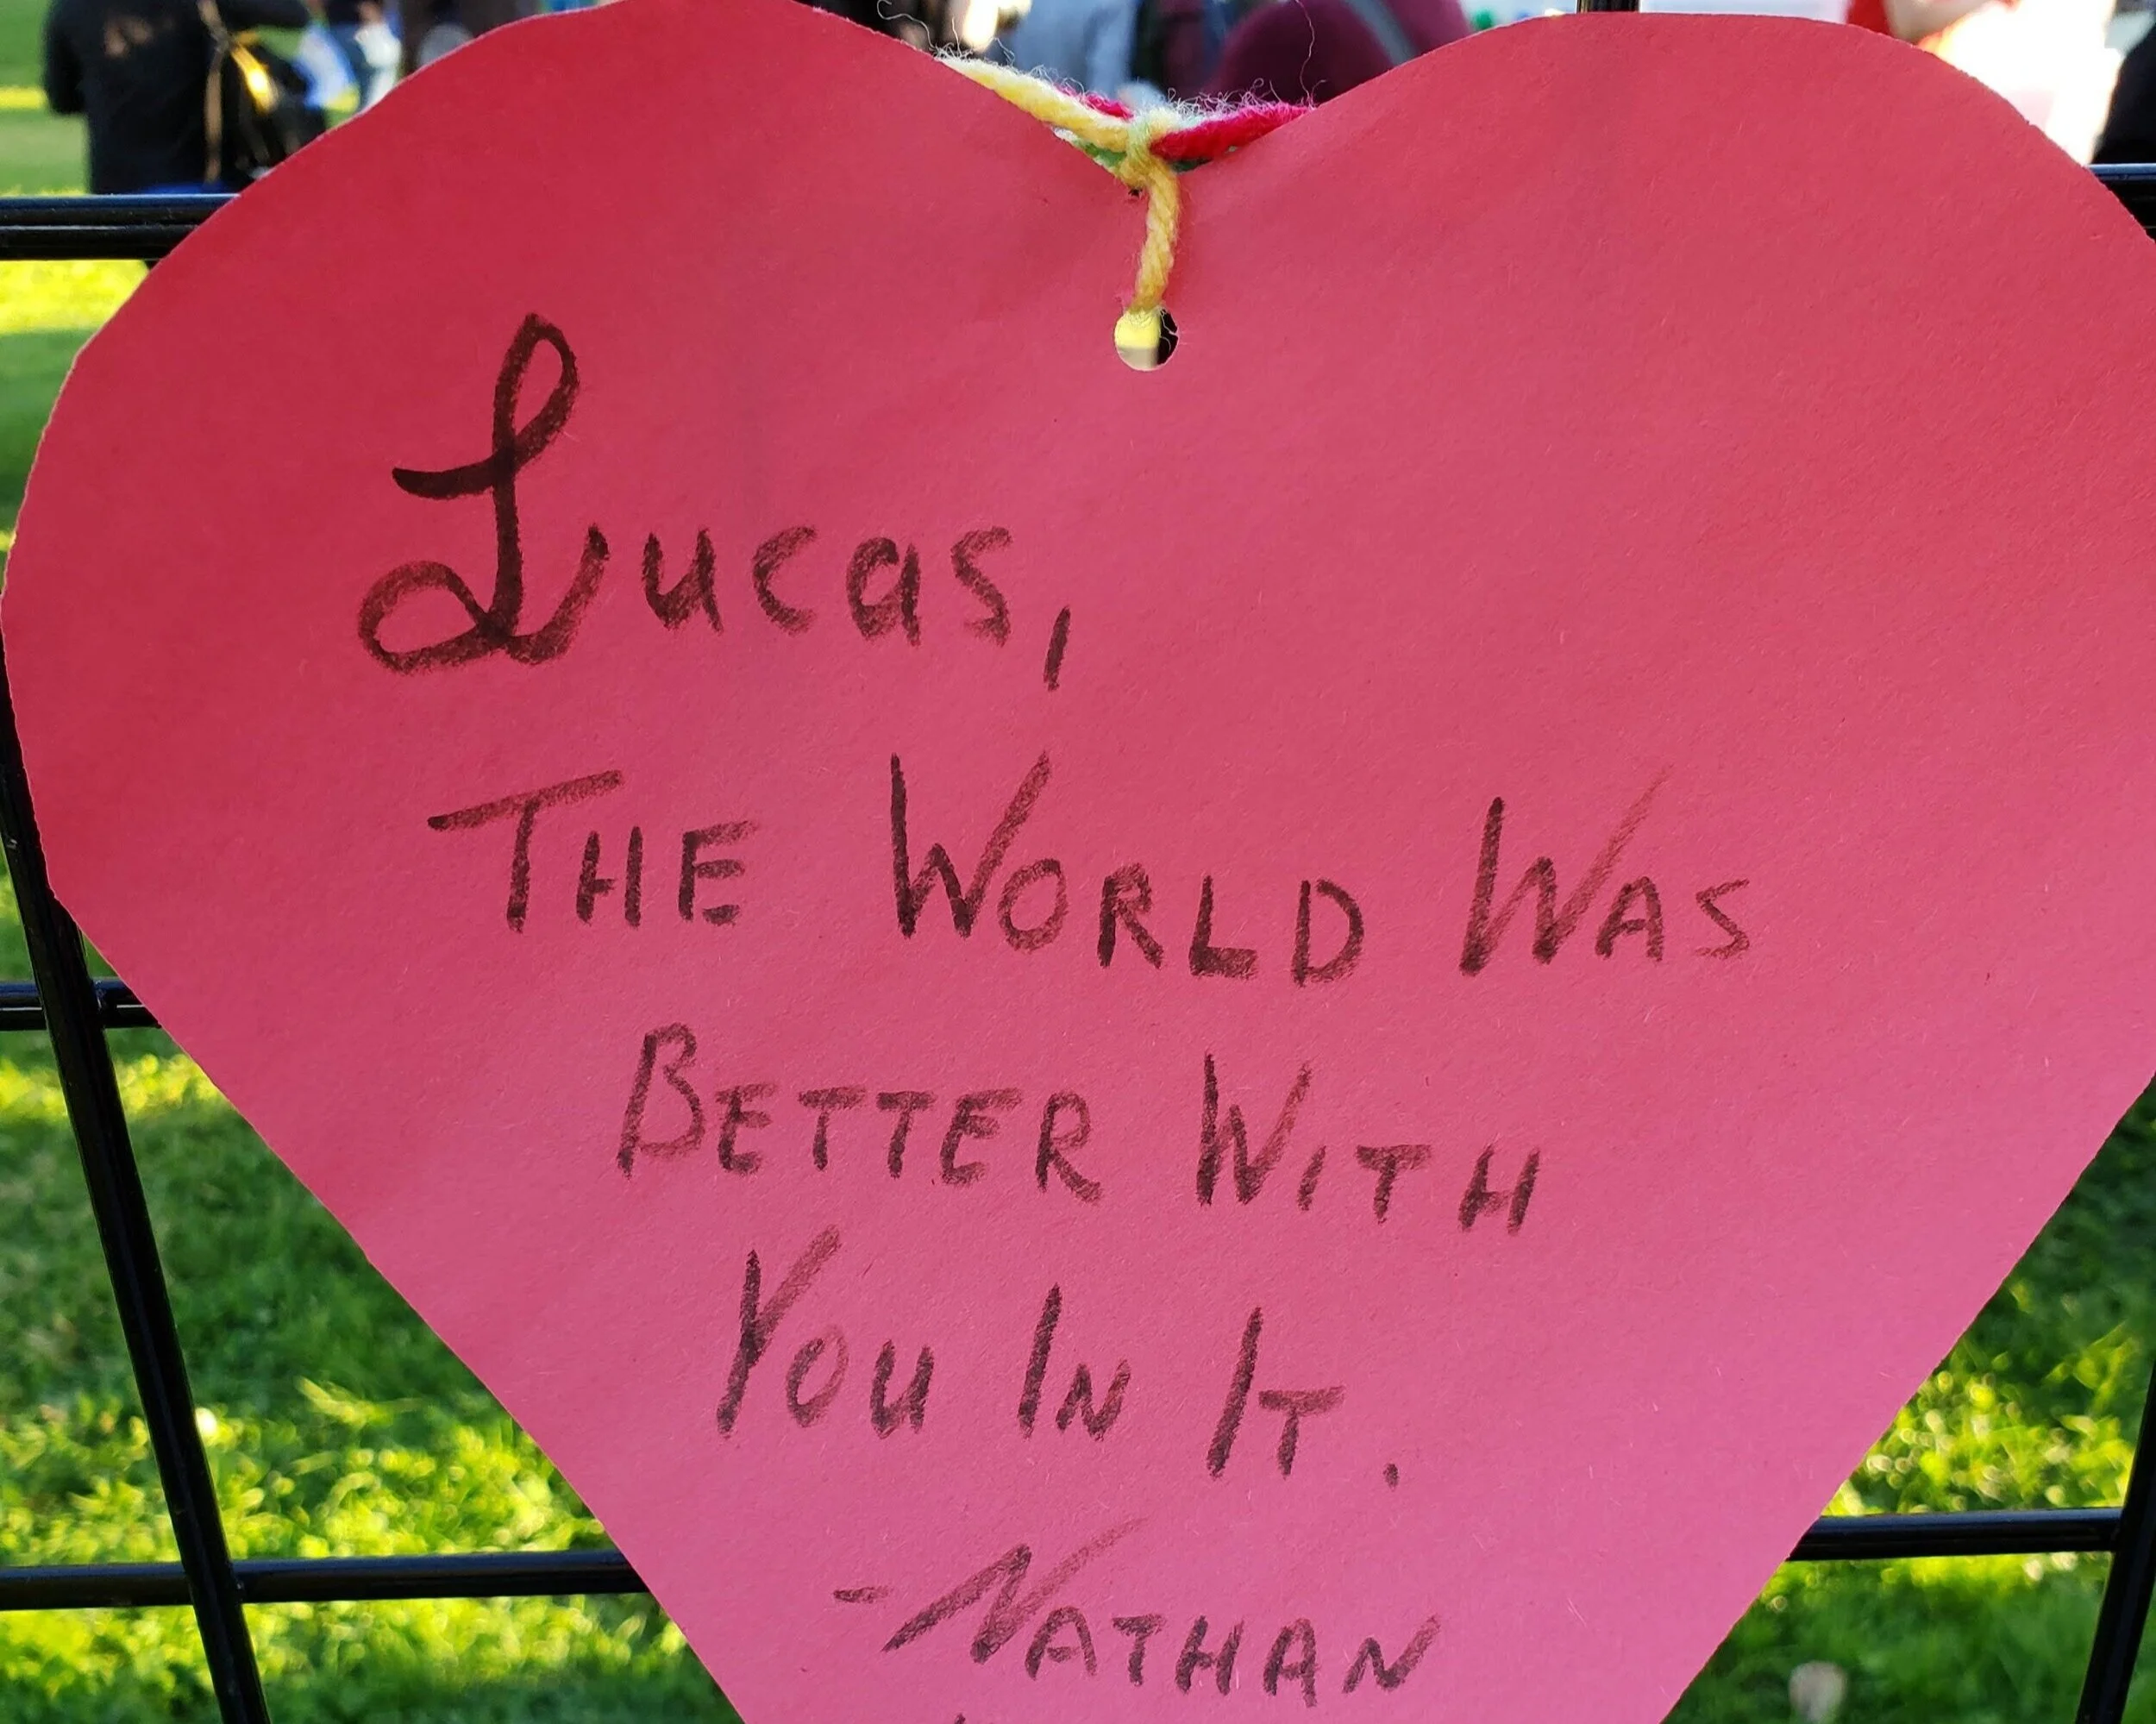 Lucas,
THE WORLD WAS
BETTER WITH
YOU IN IT.
-NATHAN